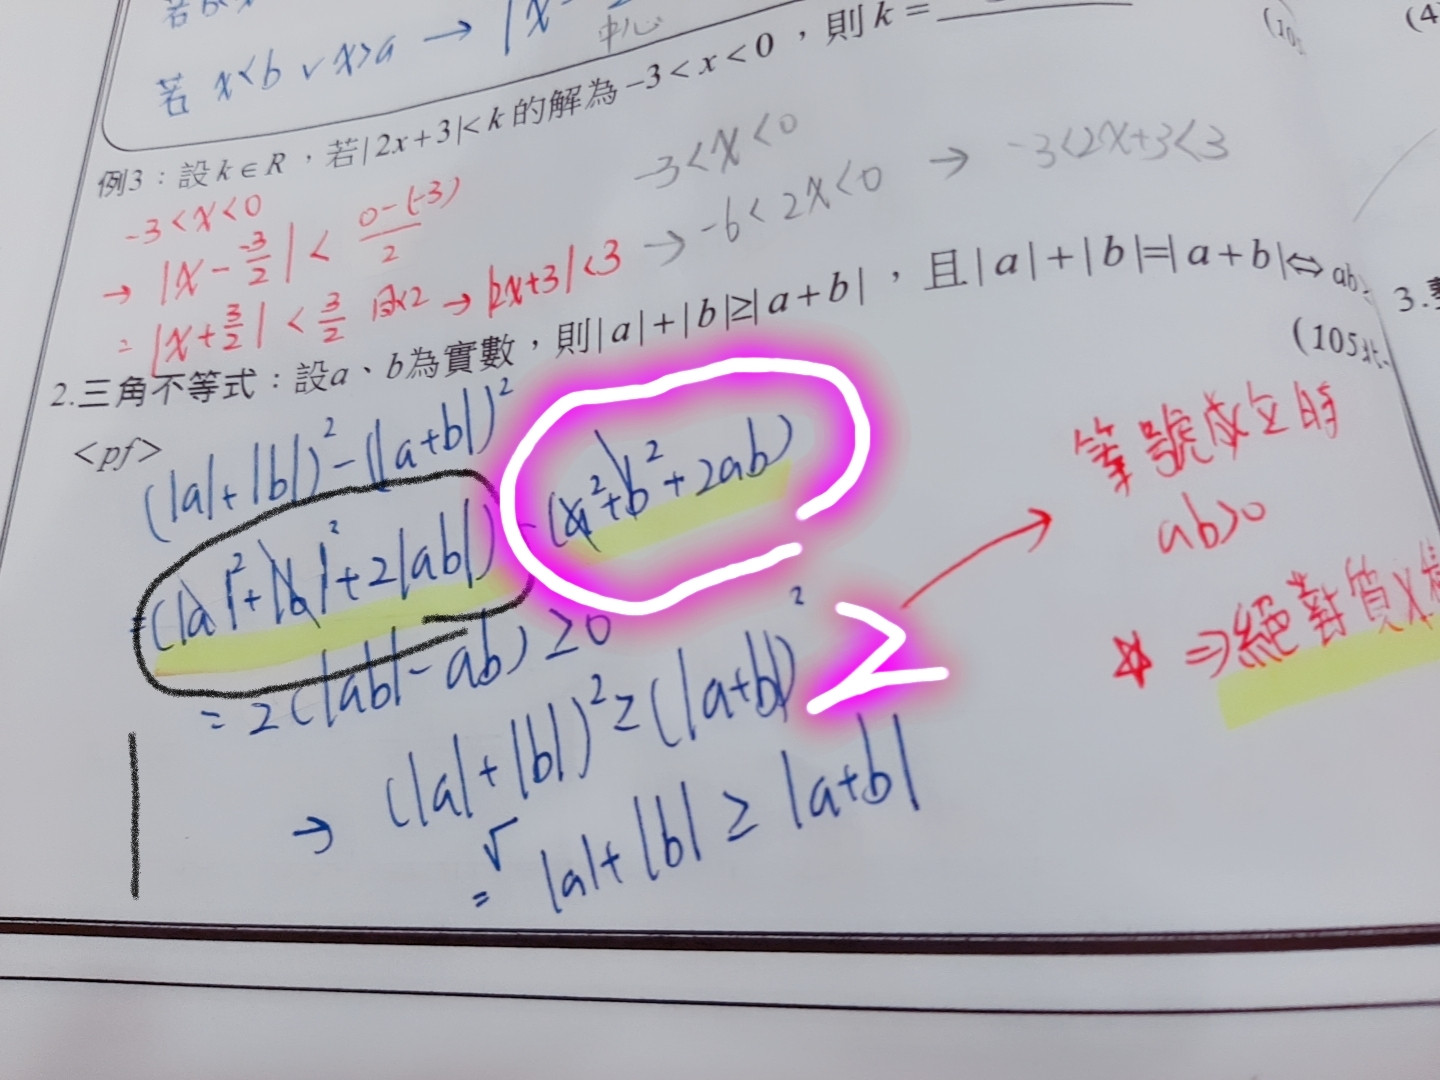 若
若 x<b ∨ x>a → |x-
中心
例3：設k∈R，若|2x+3|<k的解為-3<x<0，則k=
(4
-3<x<0
→ |x-\frac{-3}{2}|<\frac{0-(-3)}{2}
= |x+\frac{3}{2}|<\frac{3}{2} 同×2 → |2x+3|<3
-3<x<0
→ -6<2x<0 → -3<2x+3<3
2.三角不等式：設a、b為實數，則|a|+|b|≥|a+b|，且|a|+|b|=|a+b|⇔ab≥
(105北
3.
<pf>
(|a|+|b|)²-(|a+b|)²
=(|a|²+|b|²+2|ab|)-(a²+b²+2ab)
=2(|ab|-ab)≥0
→ (|a|+|b|)²≥(|a+b|)²
2
=√ |a|+|b|≥|a+b|
1
等號成立時
ab>0
☆ ⇒絕對質